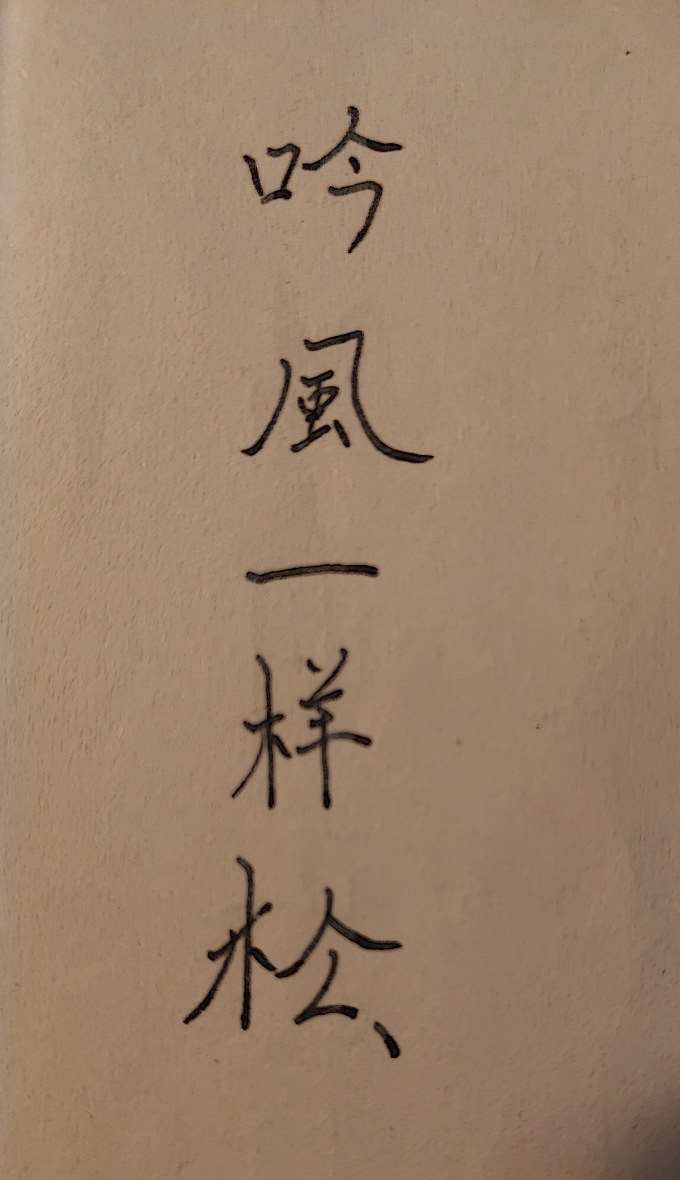 吟風一样松